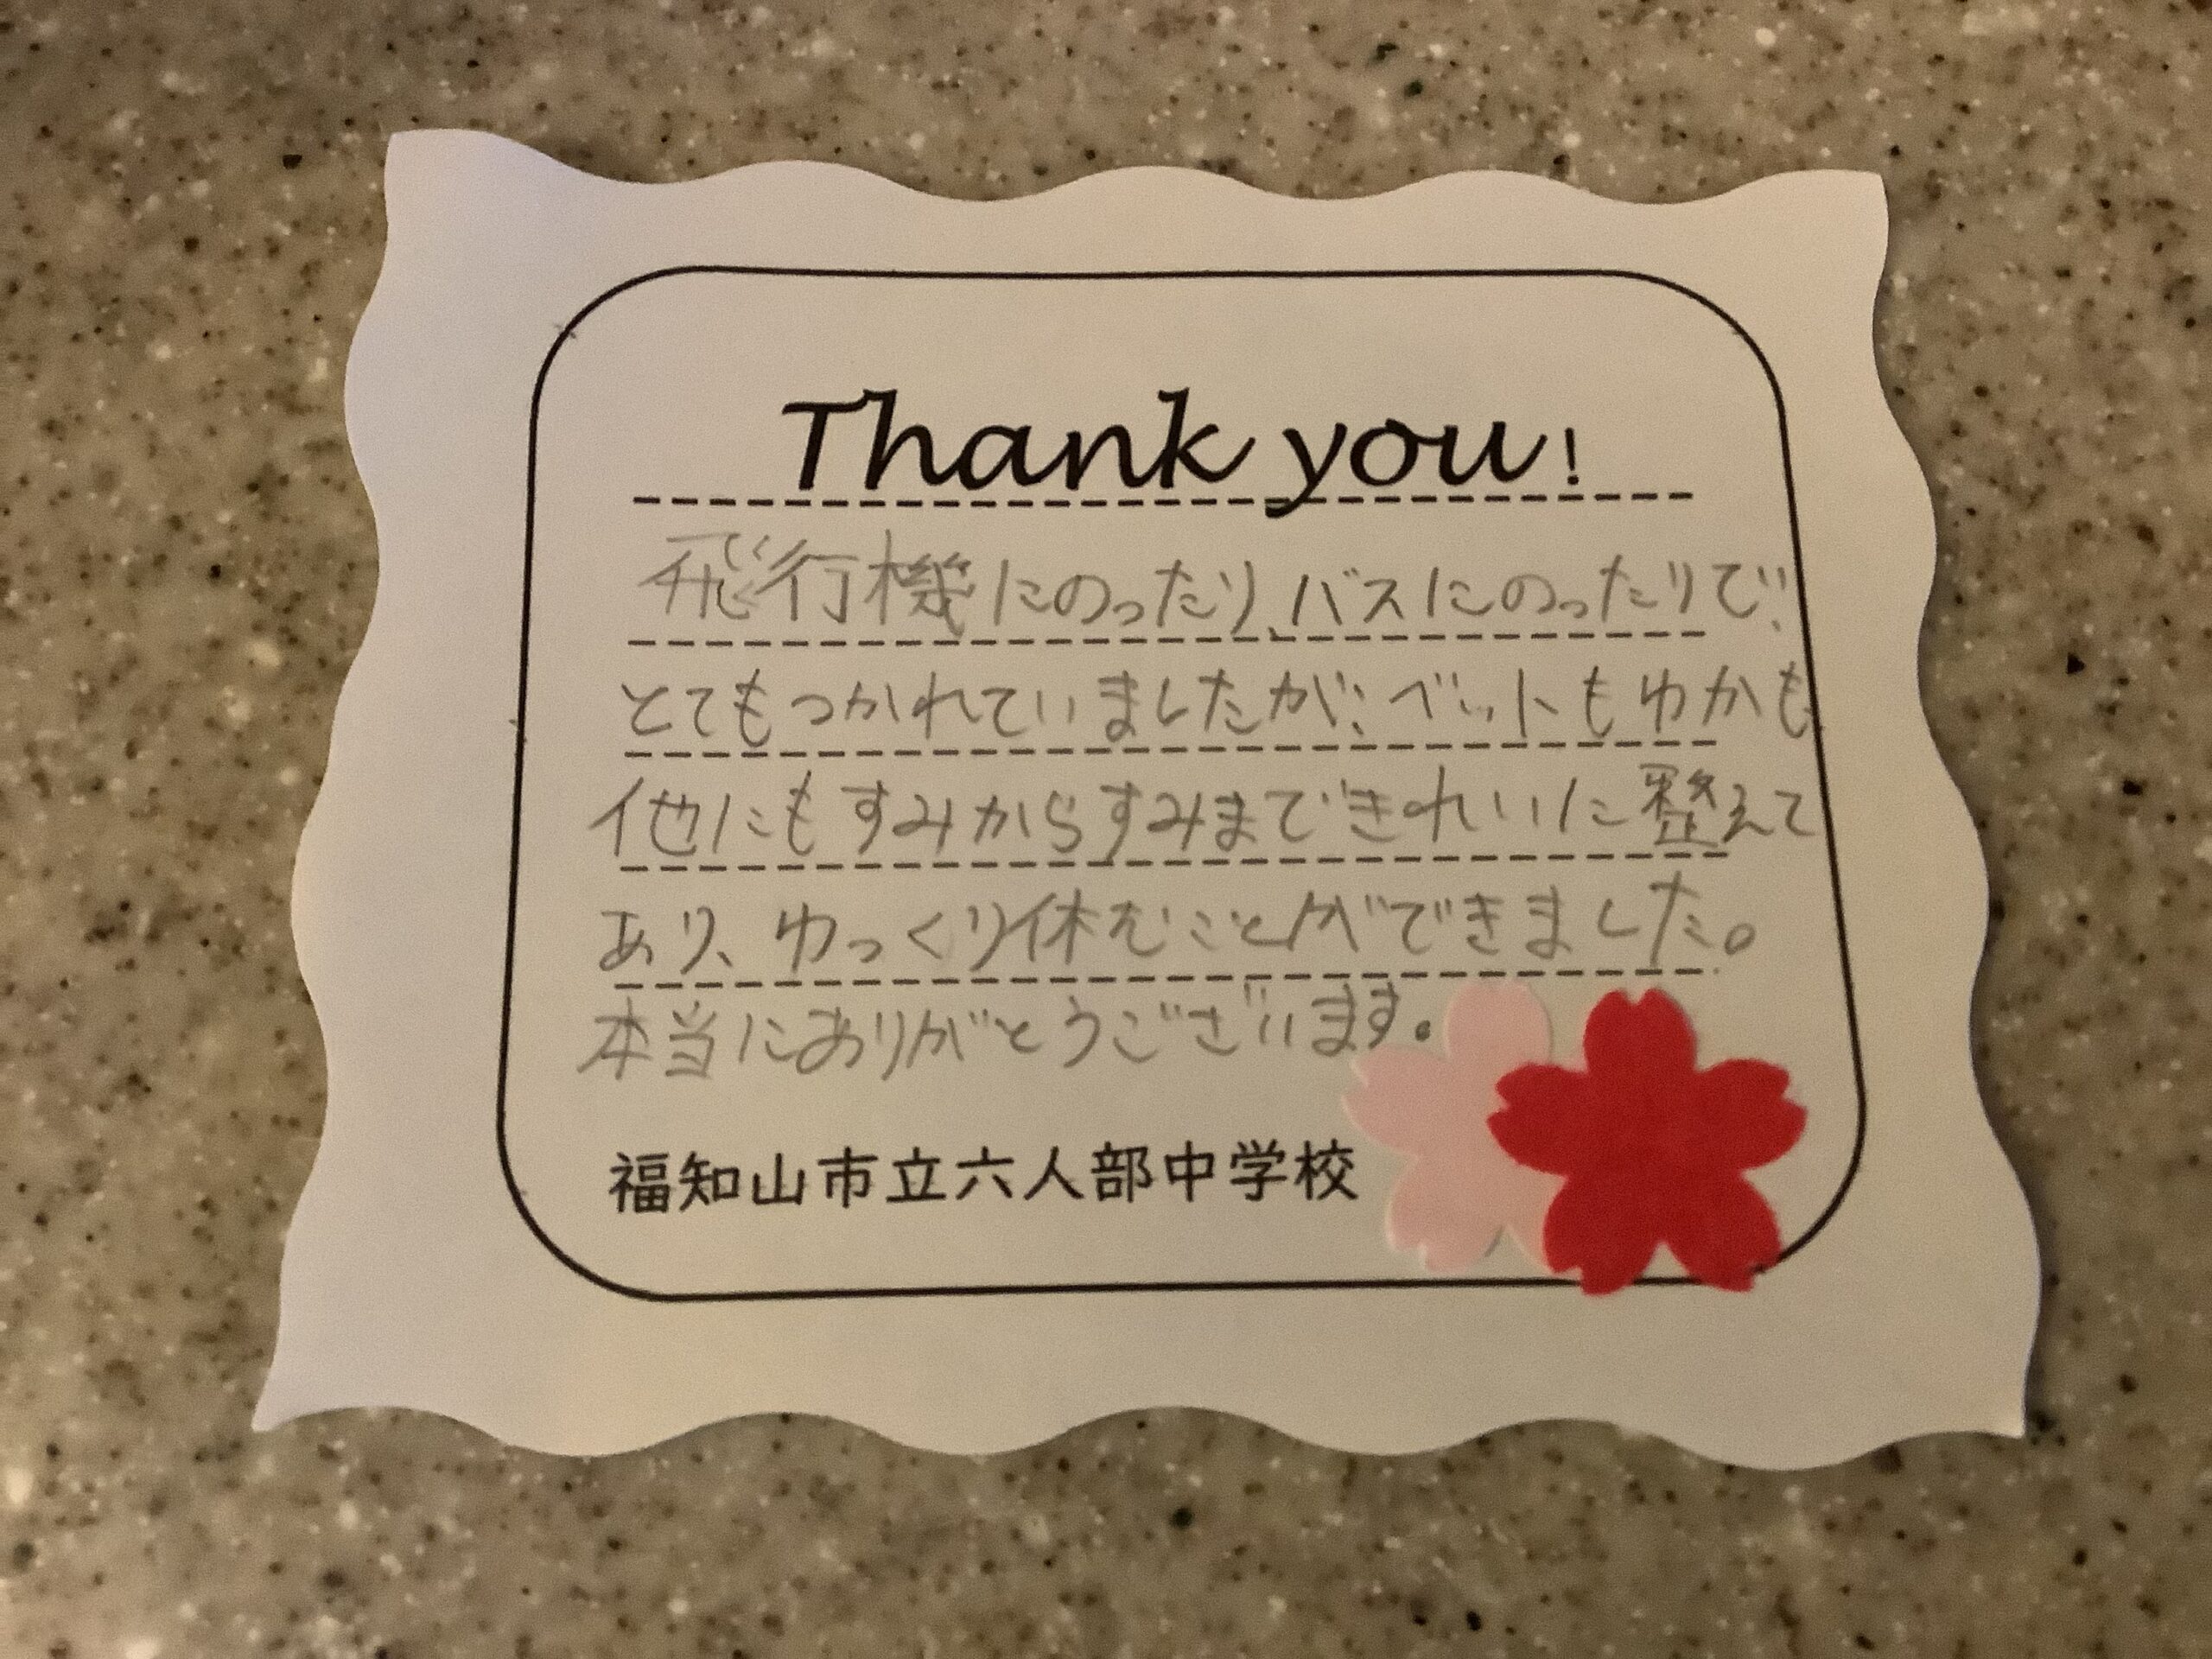 Thank you!
飛行機にのったり、バスにのったりで、
とてもつかれていましたが、ベットもゆかも
他にもすみからすみまできれいに整えて
あり、ゆっくり休むことができました。
本当にありがとうございます。
福知山市立六人部中学校